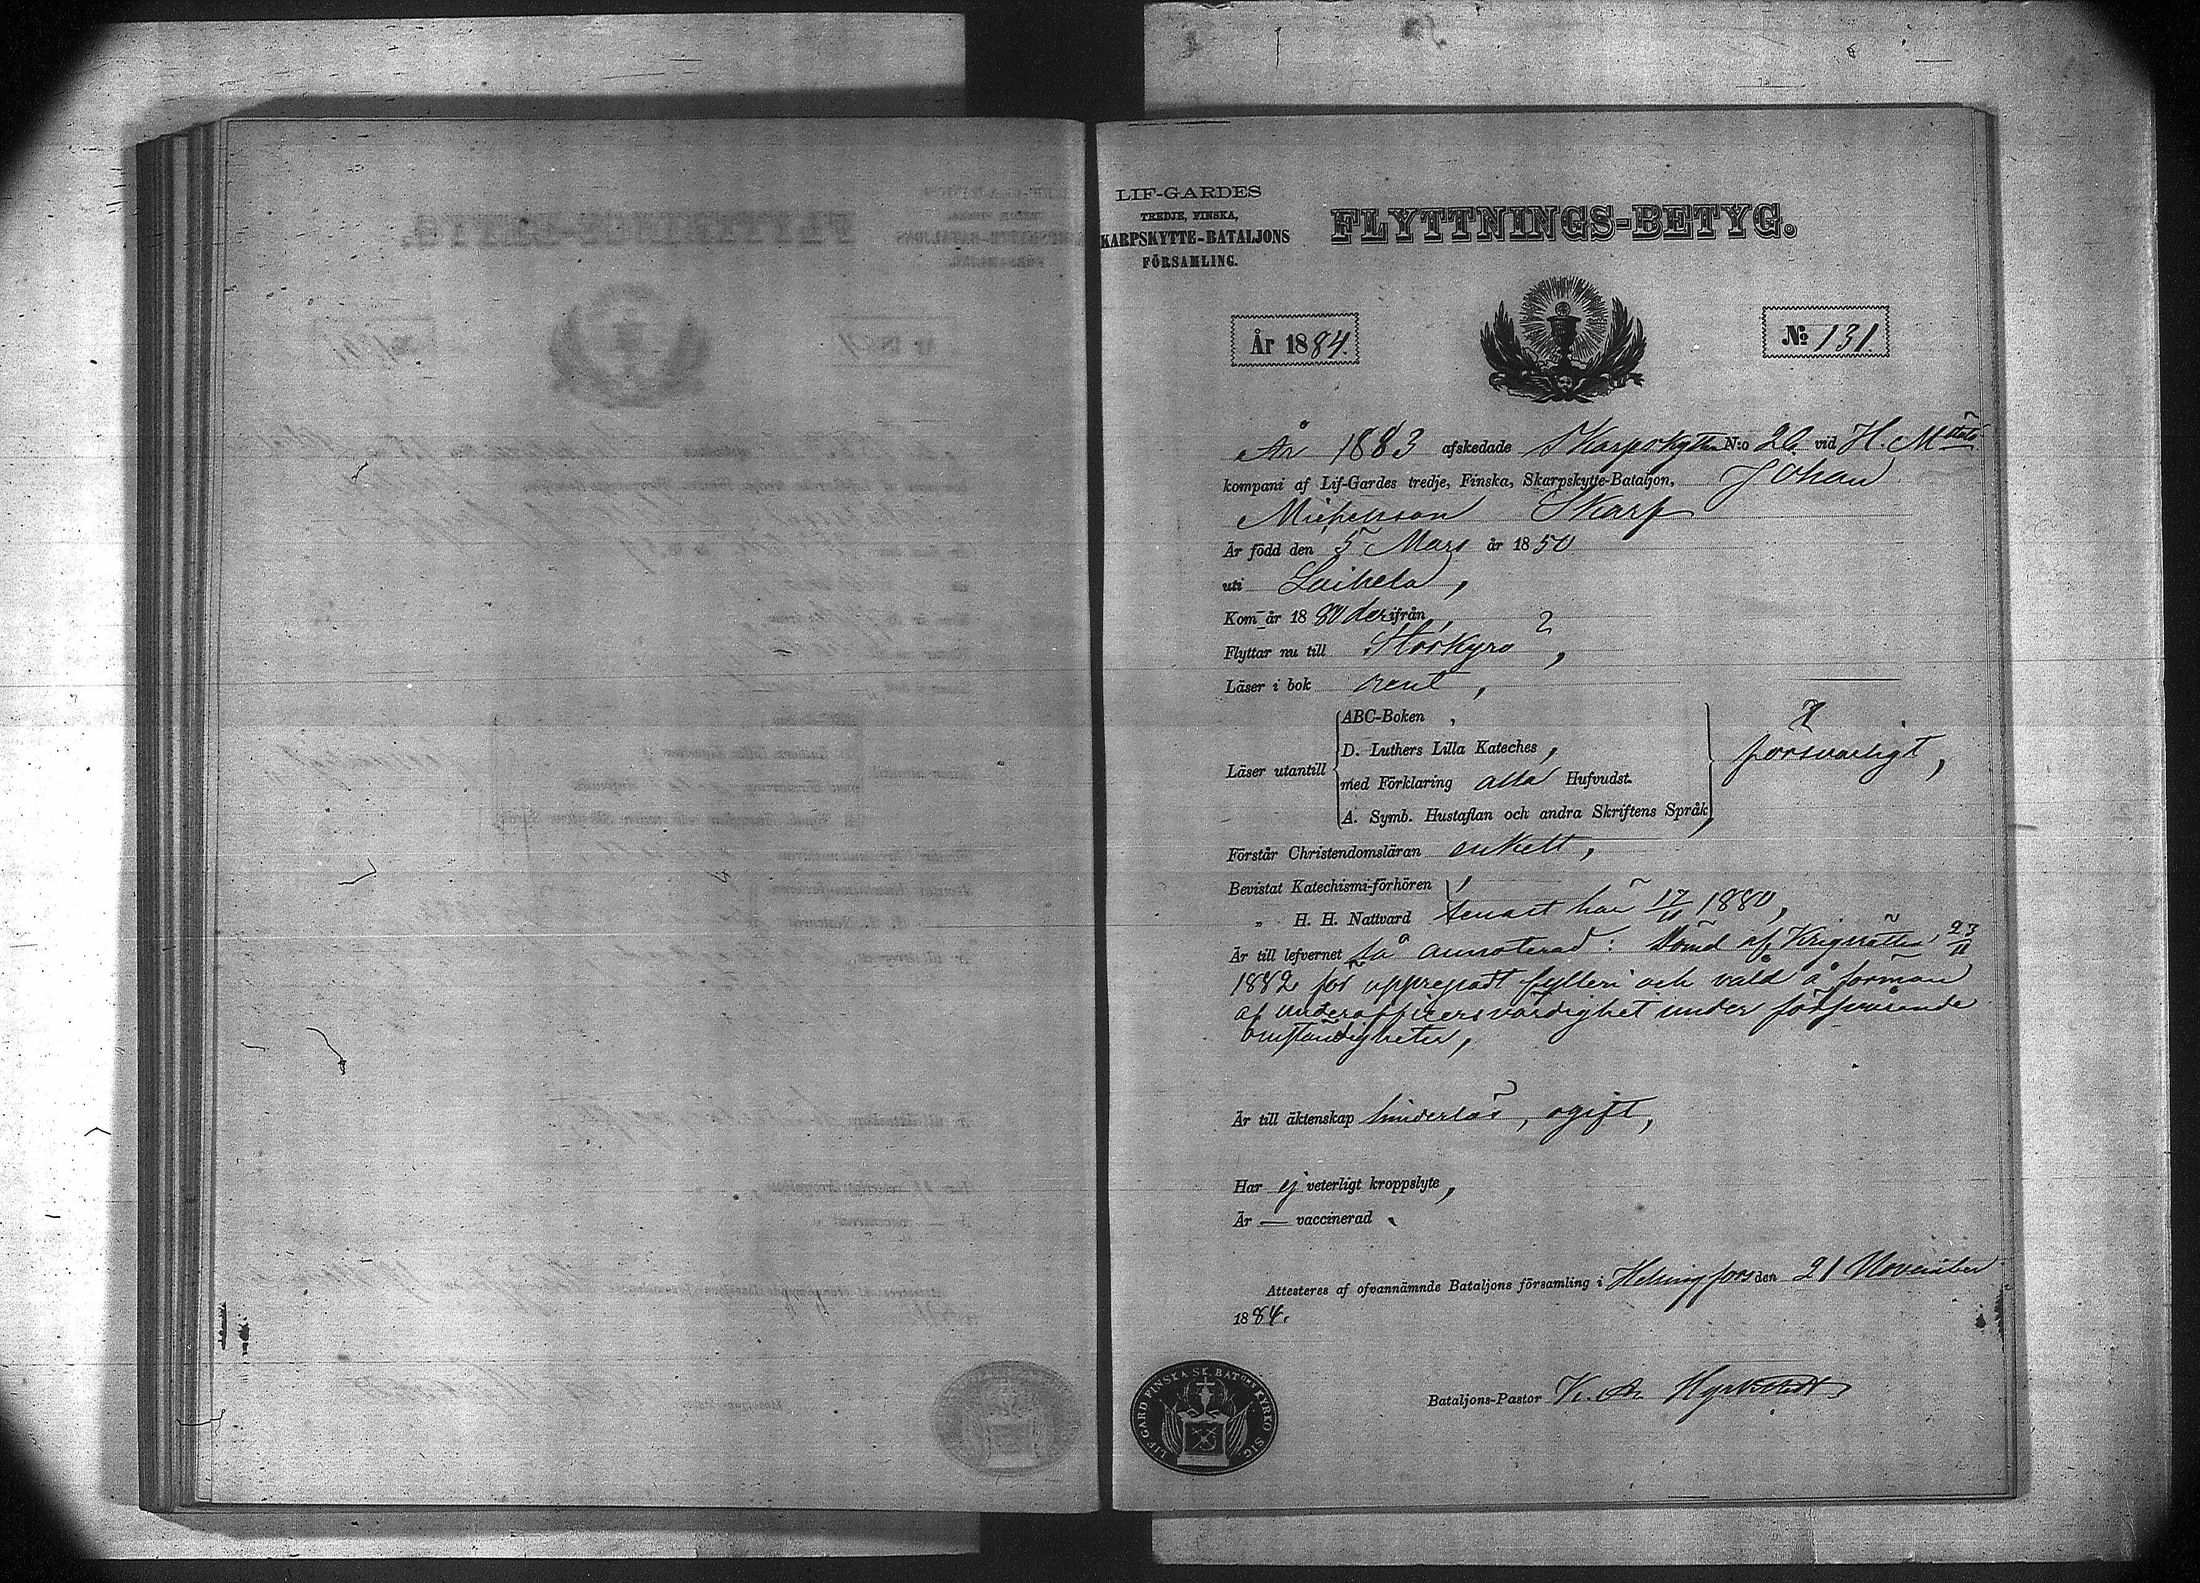 LIF-GARDES
TREDJE, FINSKA,
KARPSKYTTE-BATALJONS
FÖRSAMLING.
FLYTTNINGS-BETYG.
År 1884.
№ 131.
År 1883 afskedade Skarpskytten N:o 26 vid H. M
kompani af Lif-Gardes tredje, Finska, Skarpskytte-Bataljon, Johan
Skarp
Är född den 5 Mars år 1850
uti Laihela,
Kom år 1880 derifrån,
Flyttar nu till Storkyro ?,
Läser i bok rent,
Läser utantill
ABC-Boken,
D. Luthers Lilla Kateches,
med Förklaring alla Hufvudst.
A. Symb. Hustaflan och andra Skriftens Språk,
försvarligt,
Förstår Christendomsläran enkelt,
Bevistat Katechismi-förhören
„ H. H. Nattvard senast här 17/11 1880,
Är till lefvernet så annoterad: Dömd af Krigsrätten 23/11
1882 för upprepadt fylleri och våld å förman
af underofficersvärdighet under försvårande
omständigheter,
Är till äktenskap hinderlös, ogift,
Har ej veterligt kroppslyte,
Är — vaccinerad.
Attesteres af ofvannämnde Bataljons församling i Helsingfors den 21 November
1884.
Bataljons-Pastor K. A. Hyrkstedt
LIF-GARD. FINSKA SK. BAT:ONS KYRKO SIG.